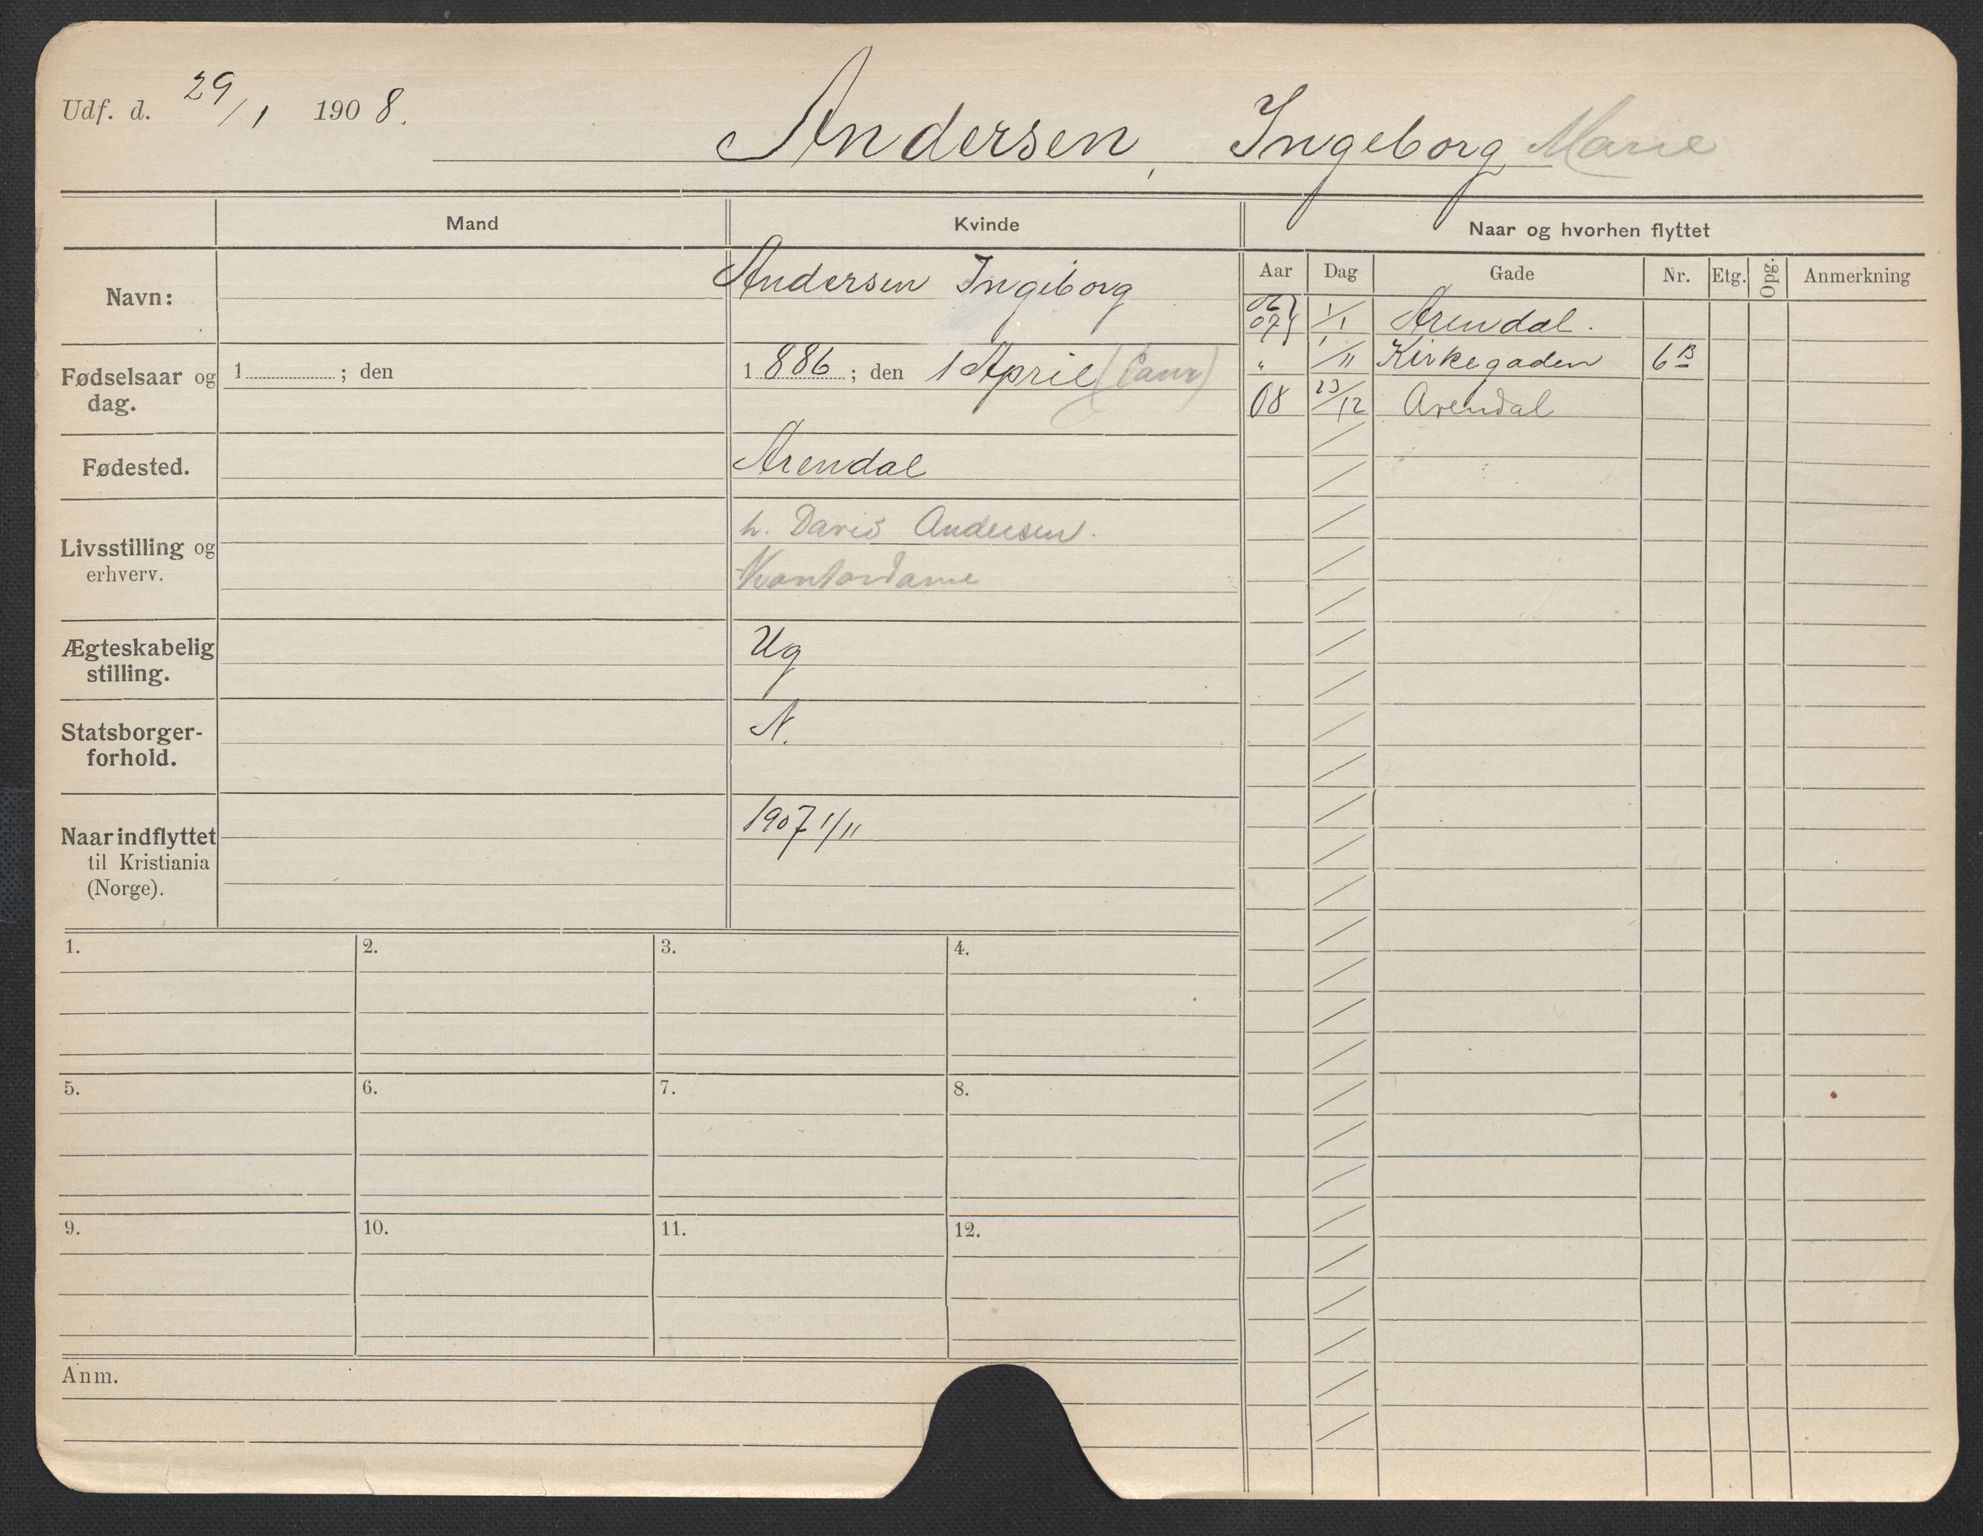 Udf. d. 29/1 1908.
Andersen, Ingeborg Marie
Mand
Kvinde
Naar og hvorhen flyttet
Navn:
Andersen Ingeborg
Aar Dag Gade Nr. Etg. Opg. Anmerkning
06/07 1/1 Arendal.
" 1/11 Kirkegaden 6 B
08 23/12 Arendal
Fødselsaar og dag.
1 ; den
1886 ; den 1 April
Fødested.
Arendal
Livsstilling og
erhverv.
h. David Andersen.
Kontordame
Ægteskabelig
stilling.
Ug
Statsborger-
forhold.
N.
Naar indflyttet
til Kristiania
(Norge).
1907 1/11
1. 2. 3. 4.
5. 6. 7. 8.
9. 10. 11. 12.
Anm.